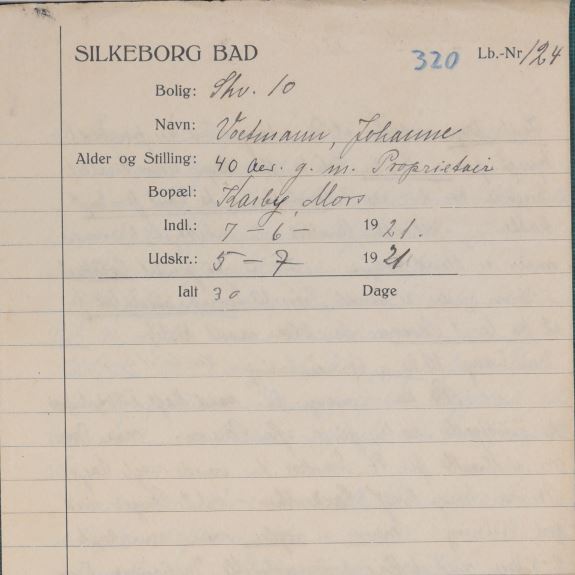 SILKEBORG BAD 320 Lb.-Nr 124
Bolig: Shv. 10
Navn: Voetmann, Johanne
Alder og Stilling: 40 Aar. g. m. Proprietair
Bopæl: Karby, Mors
Indl.: 7-6- 1921.
Udskr.: 5-7 1921
Ialt 30 Dage